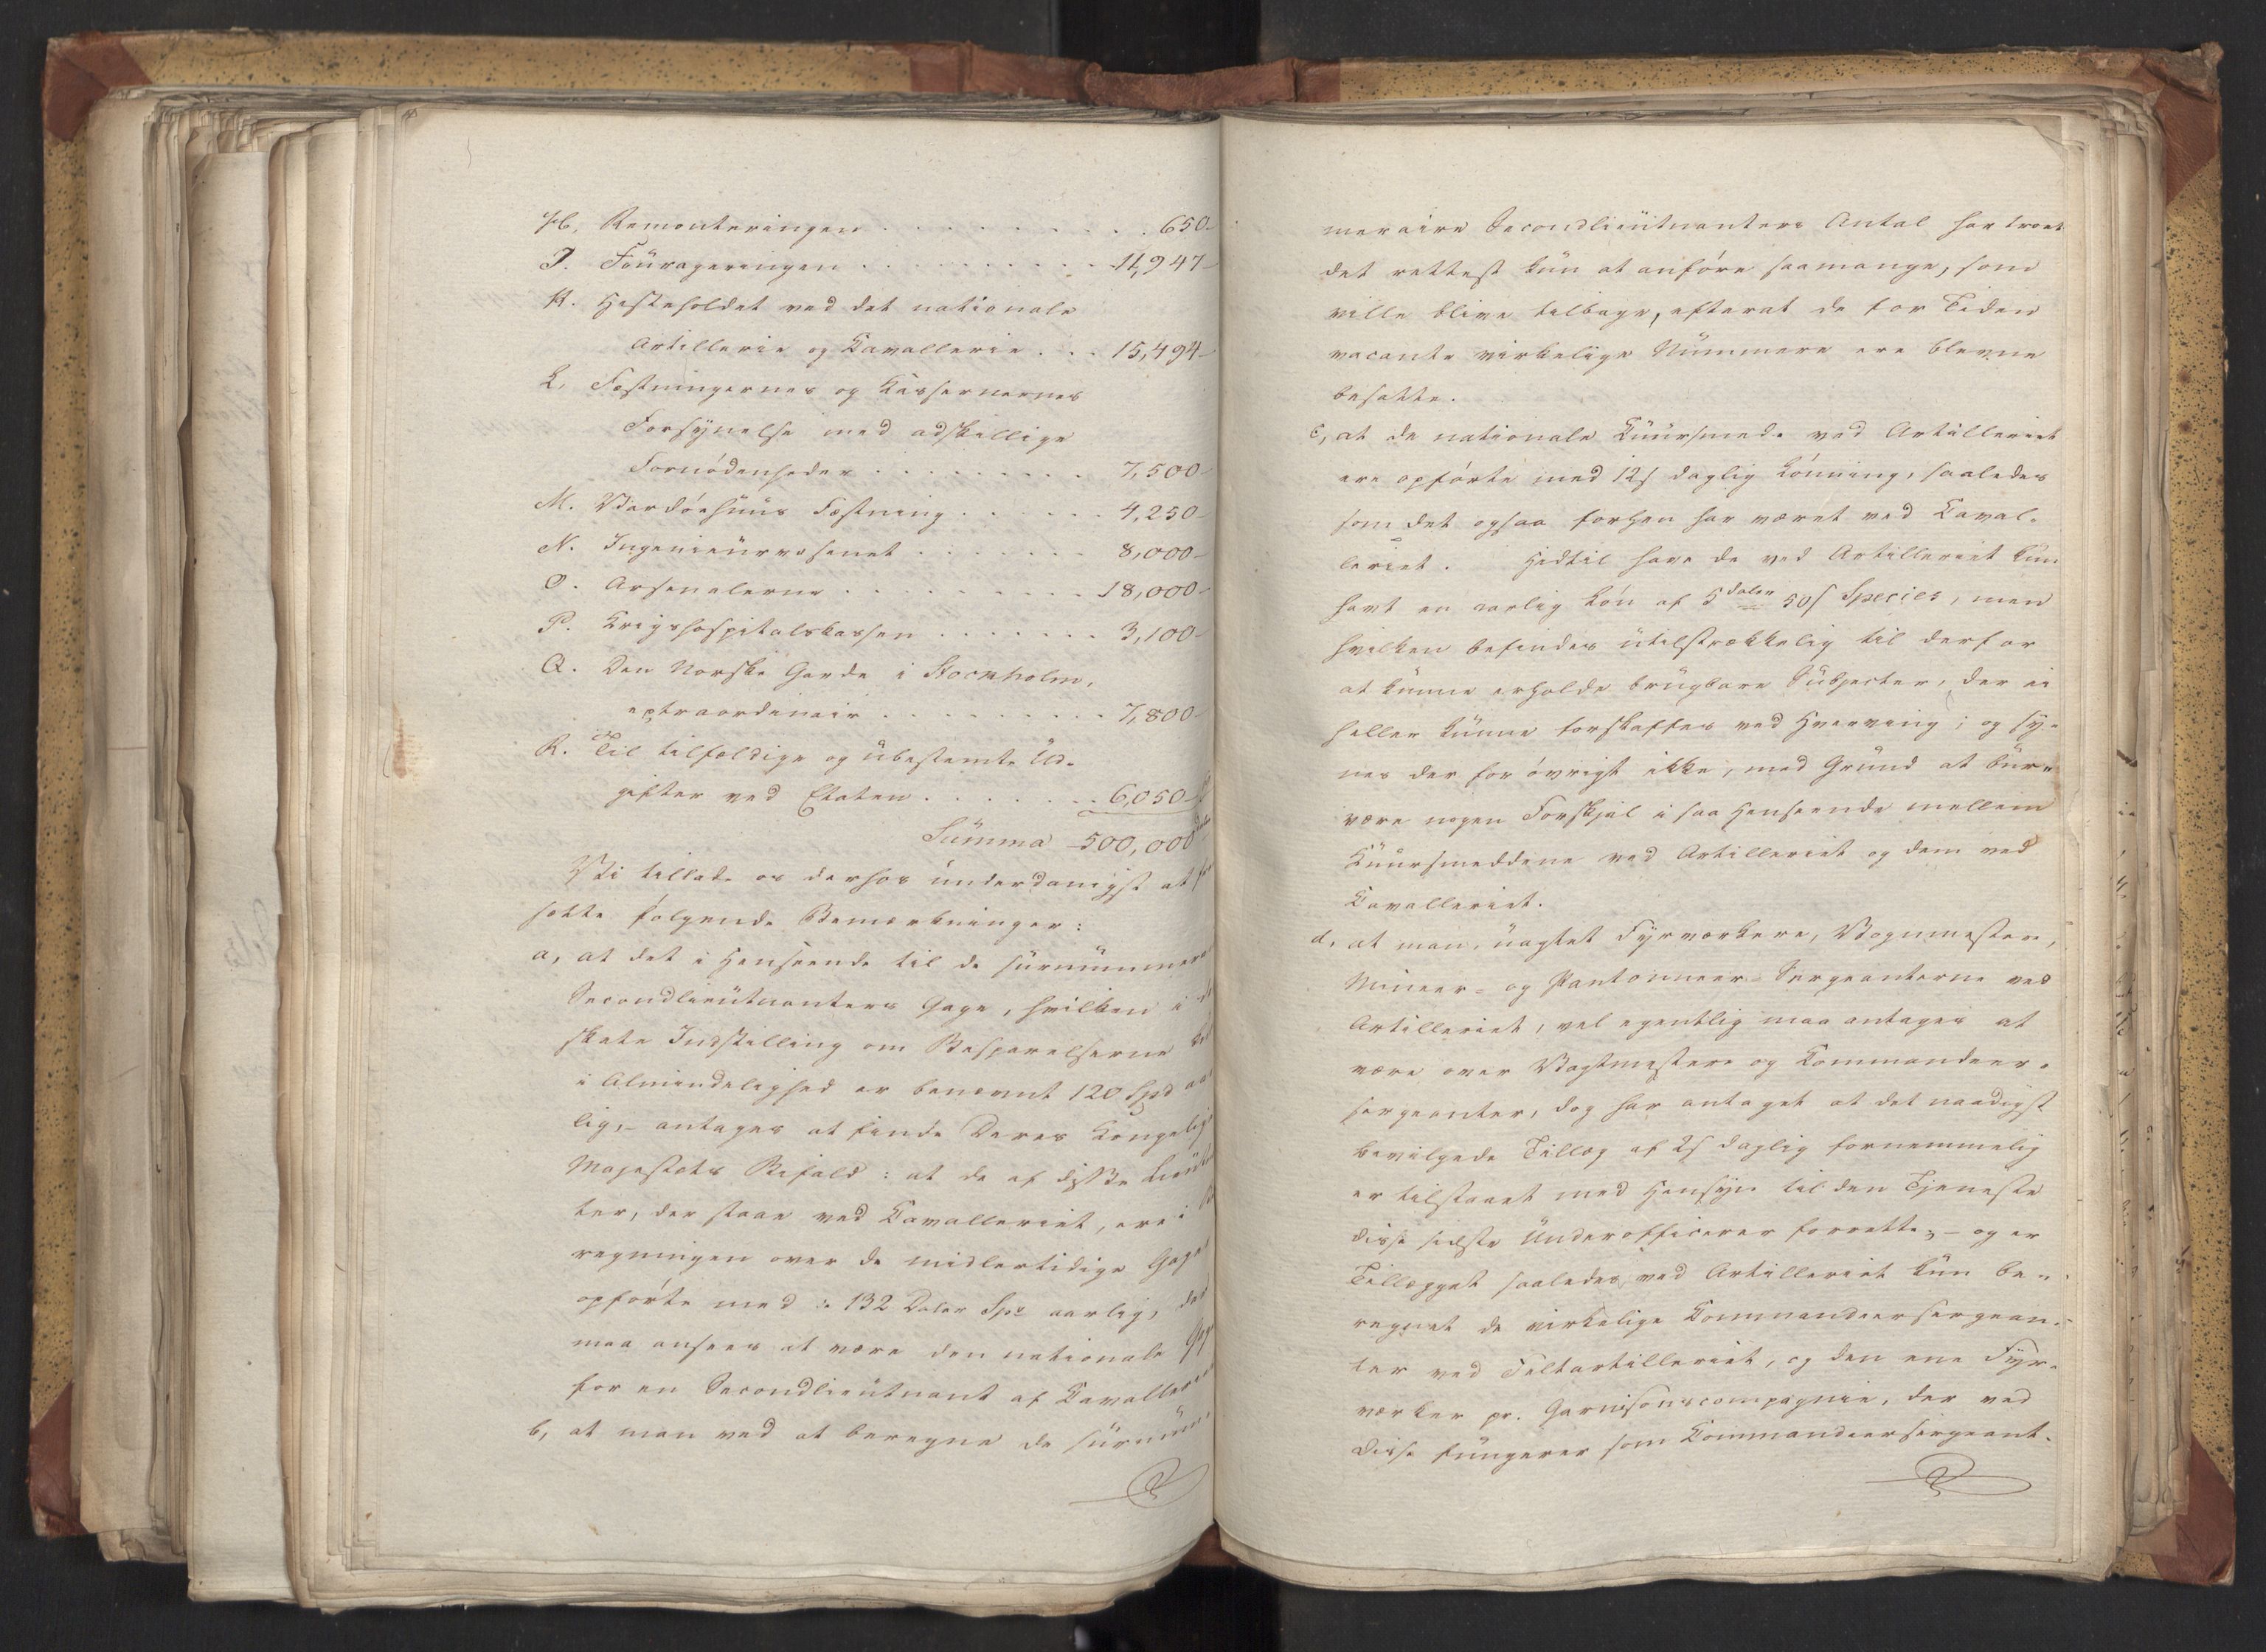 H. Remonteringen . . . . . . . . . . 650-
I. Fourageringen . . . . . . . . . 11,947-
K. Hesteholdet ved det nationale
Artillerie og Cavallerie . . . 15,494-
L. Fæstningernes og Kassernernes
Forsynelse med adskillige
Fornødenheder . . . . . . . . 7,500-
M. Wardøehuus Fæstning . . . . . . 4,250-
N. Ingenieurvæsenet . . . . . . . 8,000-
O. Arsenalerne . . . . . . . . . 18,000-
P. Krigshospitalskassen . . . . . . . 3,100-
Q. Den Norske Garde i Stockholm,
extraordinair . . . . . . . . . 7,800-
R. Til tilfældige og ubestemte Ud-
gifter ved Etaten . . . . . . . 6,050-
Summa 500,000
Vi tillade os derhos underdanigst at
sætte følgende Bemærkninger:
a, at det i Henseende til de surnummerai
Secondlieutnanters Gage, hvilken i
skete Indstilling om Besparelserne
i Almindelighed er benævnt 120 Spd aar
lig, - antages at finde Deres Kongelige
Majestæts Bifald: at de af disse Lieut
ter, der staae ved Cavalleriet, ere i Be
regningen over de midlertidige Gager
opførte med 132 Daler Spe aarlig, der
maa ansees at være den nationale Gage
for en Secondlieutnant af Cavalleriet
b, at man ved at beregne de surnum-
meraire Secondlieutnanters Antal har troet
det rettest kun at anføre saamange, som
ville blive tilbage, efterat de for Tiden
vacante virkelige Nummere ere blevne
besatte.
c, at de nationale Kuursmede ved Artilleriet
ere opførte med 12 s daglig Lønning, saaledes
som det ogsaa forhen har været ved Caval-
leriet. Hidtil have de ved Artilleriet kun
havt en aarlig Løn af 5 Daler 50 s Species, men
hvilken befindes utilstrækkelig til derfor
at kunne erholde brugbare Subjecter, der ei
heller kunne forskaffes ved Hverving; og sy-
nes der for øvrigt ikke, med Grund at bur-
være nogen Forskjel i saa Henseende mellem
Kuursmeddene ved Artilleriet og dem ved
Cavalleriet.
d, at man, uagtet Fyrværkere, Vognmestere,
Mineer- og Pantonneer-Sergeanterne ved
Artilleriet, vel egentlig maa antages at
være over Vagtmestere og Commandeer-
sergeanter, dog har antaget at det naadigst
bevilgede Tillæg af 2 s daglig fornemmelig
er tilstaaet med Hensyn til den Tjeneste
disse sidste Underofficerer forrette; - og er
Tillægget saaledes, ved Artilleriet kun be-
regnet de virkelige Commandeersergean-
ter ved Feltartilleriet, og den ene Fyr-
værker pr. Garnisonscompagnie, der ved
disse fungerer som Commandeersergeant.